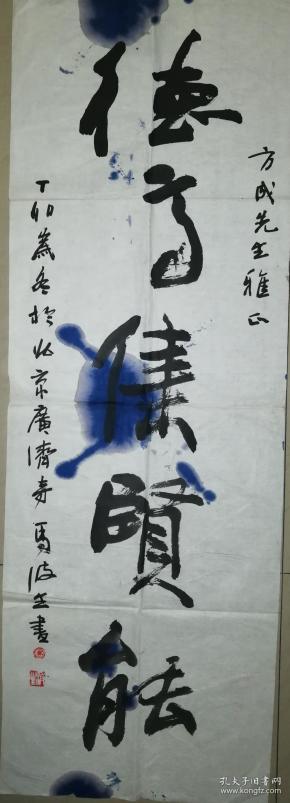 方成先生雅正
德高集賢能
丁卯歲冬於北京廣濟寺馬波生書
孔夫子旧书网
www.kongfz.com